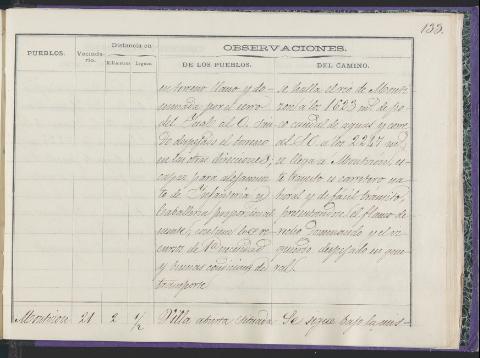 133.
PUEBLOS.
Vecindario.
Distancia en
Kilómetros
Leguas.
OBSERVACIONES.
DE LOS PUEBLOS.
DEL CAMINO.
en terreno llano y do-
minada por el cerro
del al O. sien-
do despejado el terreno
en las otras direcciones;
capaz para alojamien-
to de Infantería y
Caballería proporcional-
mente; contiene los re-
cursos de 1ª necesidad
y buenas condiciones de
transporte.
se halla el rio de
a los 1623 mts de po-
co caudal de aguas y cerro
del S.O. a los 2247 mts
se llega a es-
te trayecto es carretero na-
tural y de fácil transito,
presentandose el flanco de-
recho dominando y el iz-
quierdo despejado en gene-
ral.
21 2 1/2
Villa abierta situada
Se sigue bajo la mis-